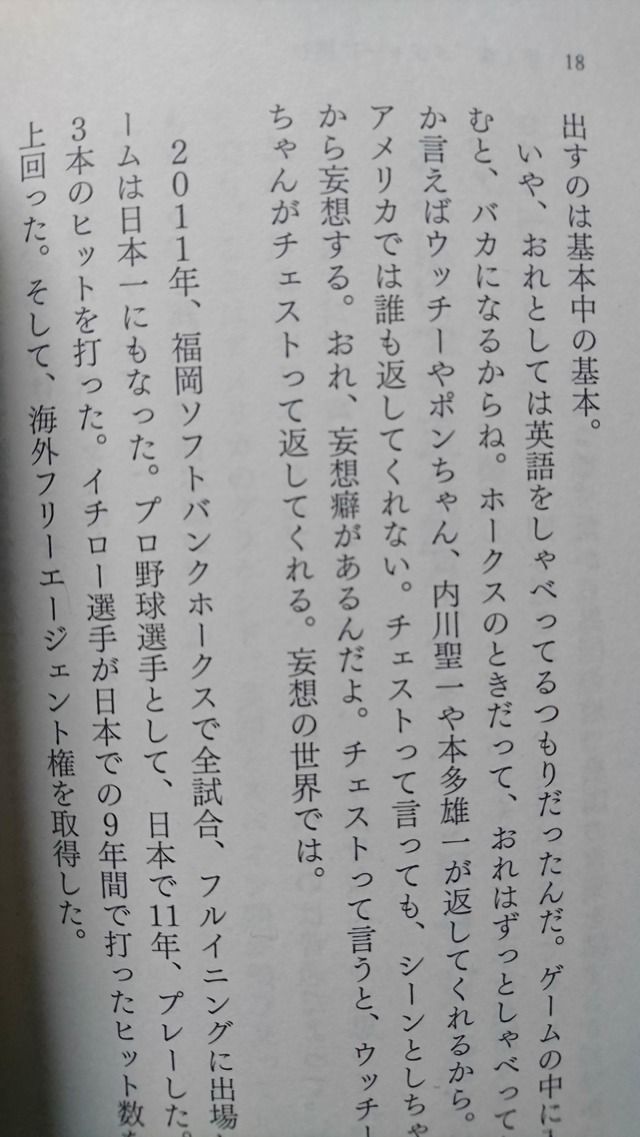 18
出すのは基本中の基本。
いや、おれとしては英語をしゃべってるつもりだったんだ。ゲームの中に
むと、バカになるからね。ホークスのときだって、おれはずっとしゃべって
か言えばウッチーやポンちゃん、内川聖一や本多雄一が返してくれるから。
アメリカでは誰も返してくれない。チェストって言っても、シーンとしちゃ
から妄想する。おれ、妄想癖があるんだよ。チェストって言うと、ウッチー
ちゃんがチェストって返してくれる。妄想の世界では。
2011年、福岡ソフトバンクホークスで全試合、フルイニングに出場
ームは日本一にもなった。プロ野球選手として、日本で11年、プレーした。
3本のヒットを打った。イチロー選手が日本での9年間で打ったヒット数を
上回った。そして、海外フリーエージェント権を取得した。